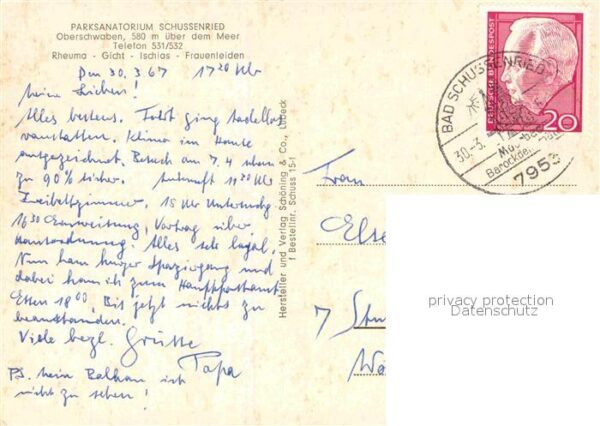 PARKSANATORIUM SCHUSSENRIED
Oberschwaben, 580 m über dem Meer
Telefon 531/532
Rheuma - Gicht - Ischias - Frauenleiden
Den 30.3.67 17 20 Uhr
Meine Lieben!
Alles bestens. Fahrt ging tadellos
vonstatten. Klima im Hause
ausgezeichnet. Besuch am 7.4 schon
zu 90% sicher. Ankunft 11 30 Uhr
Zweibettzimmer, 15 Uhr Untersuchg
16 30 Einweisung, Vortrag über
Hausordnung. Alles sehr legal.
Nun kam kurzer Spaziergang und
dabei kam ich zum Hauptpostamt
Essen 18 00, Bis jetzt nichts zu
beanstanden.
Viele herzl. Grüsse
Papa
PS. Mein Balkon ist
nicht zu sehen!
Hersteller und Verlag Schöning & Co., Lübeck
Bestellnr. Schuss 15-1
DEUTSCHE BUNDESPOST
20
BAD SCHUSSENRIED
30.-3.
7953
Frau
Else
7 Stu
privacy protection
Datenschutz